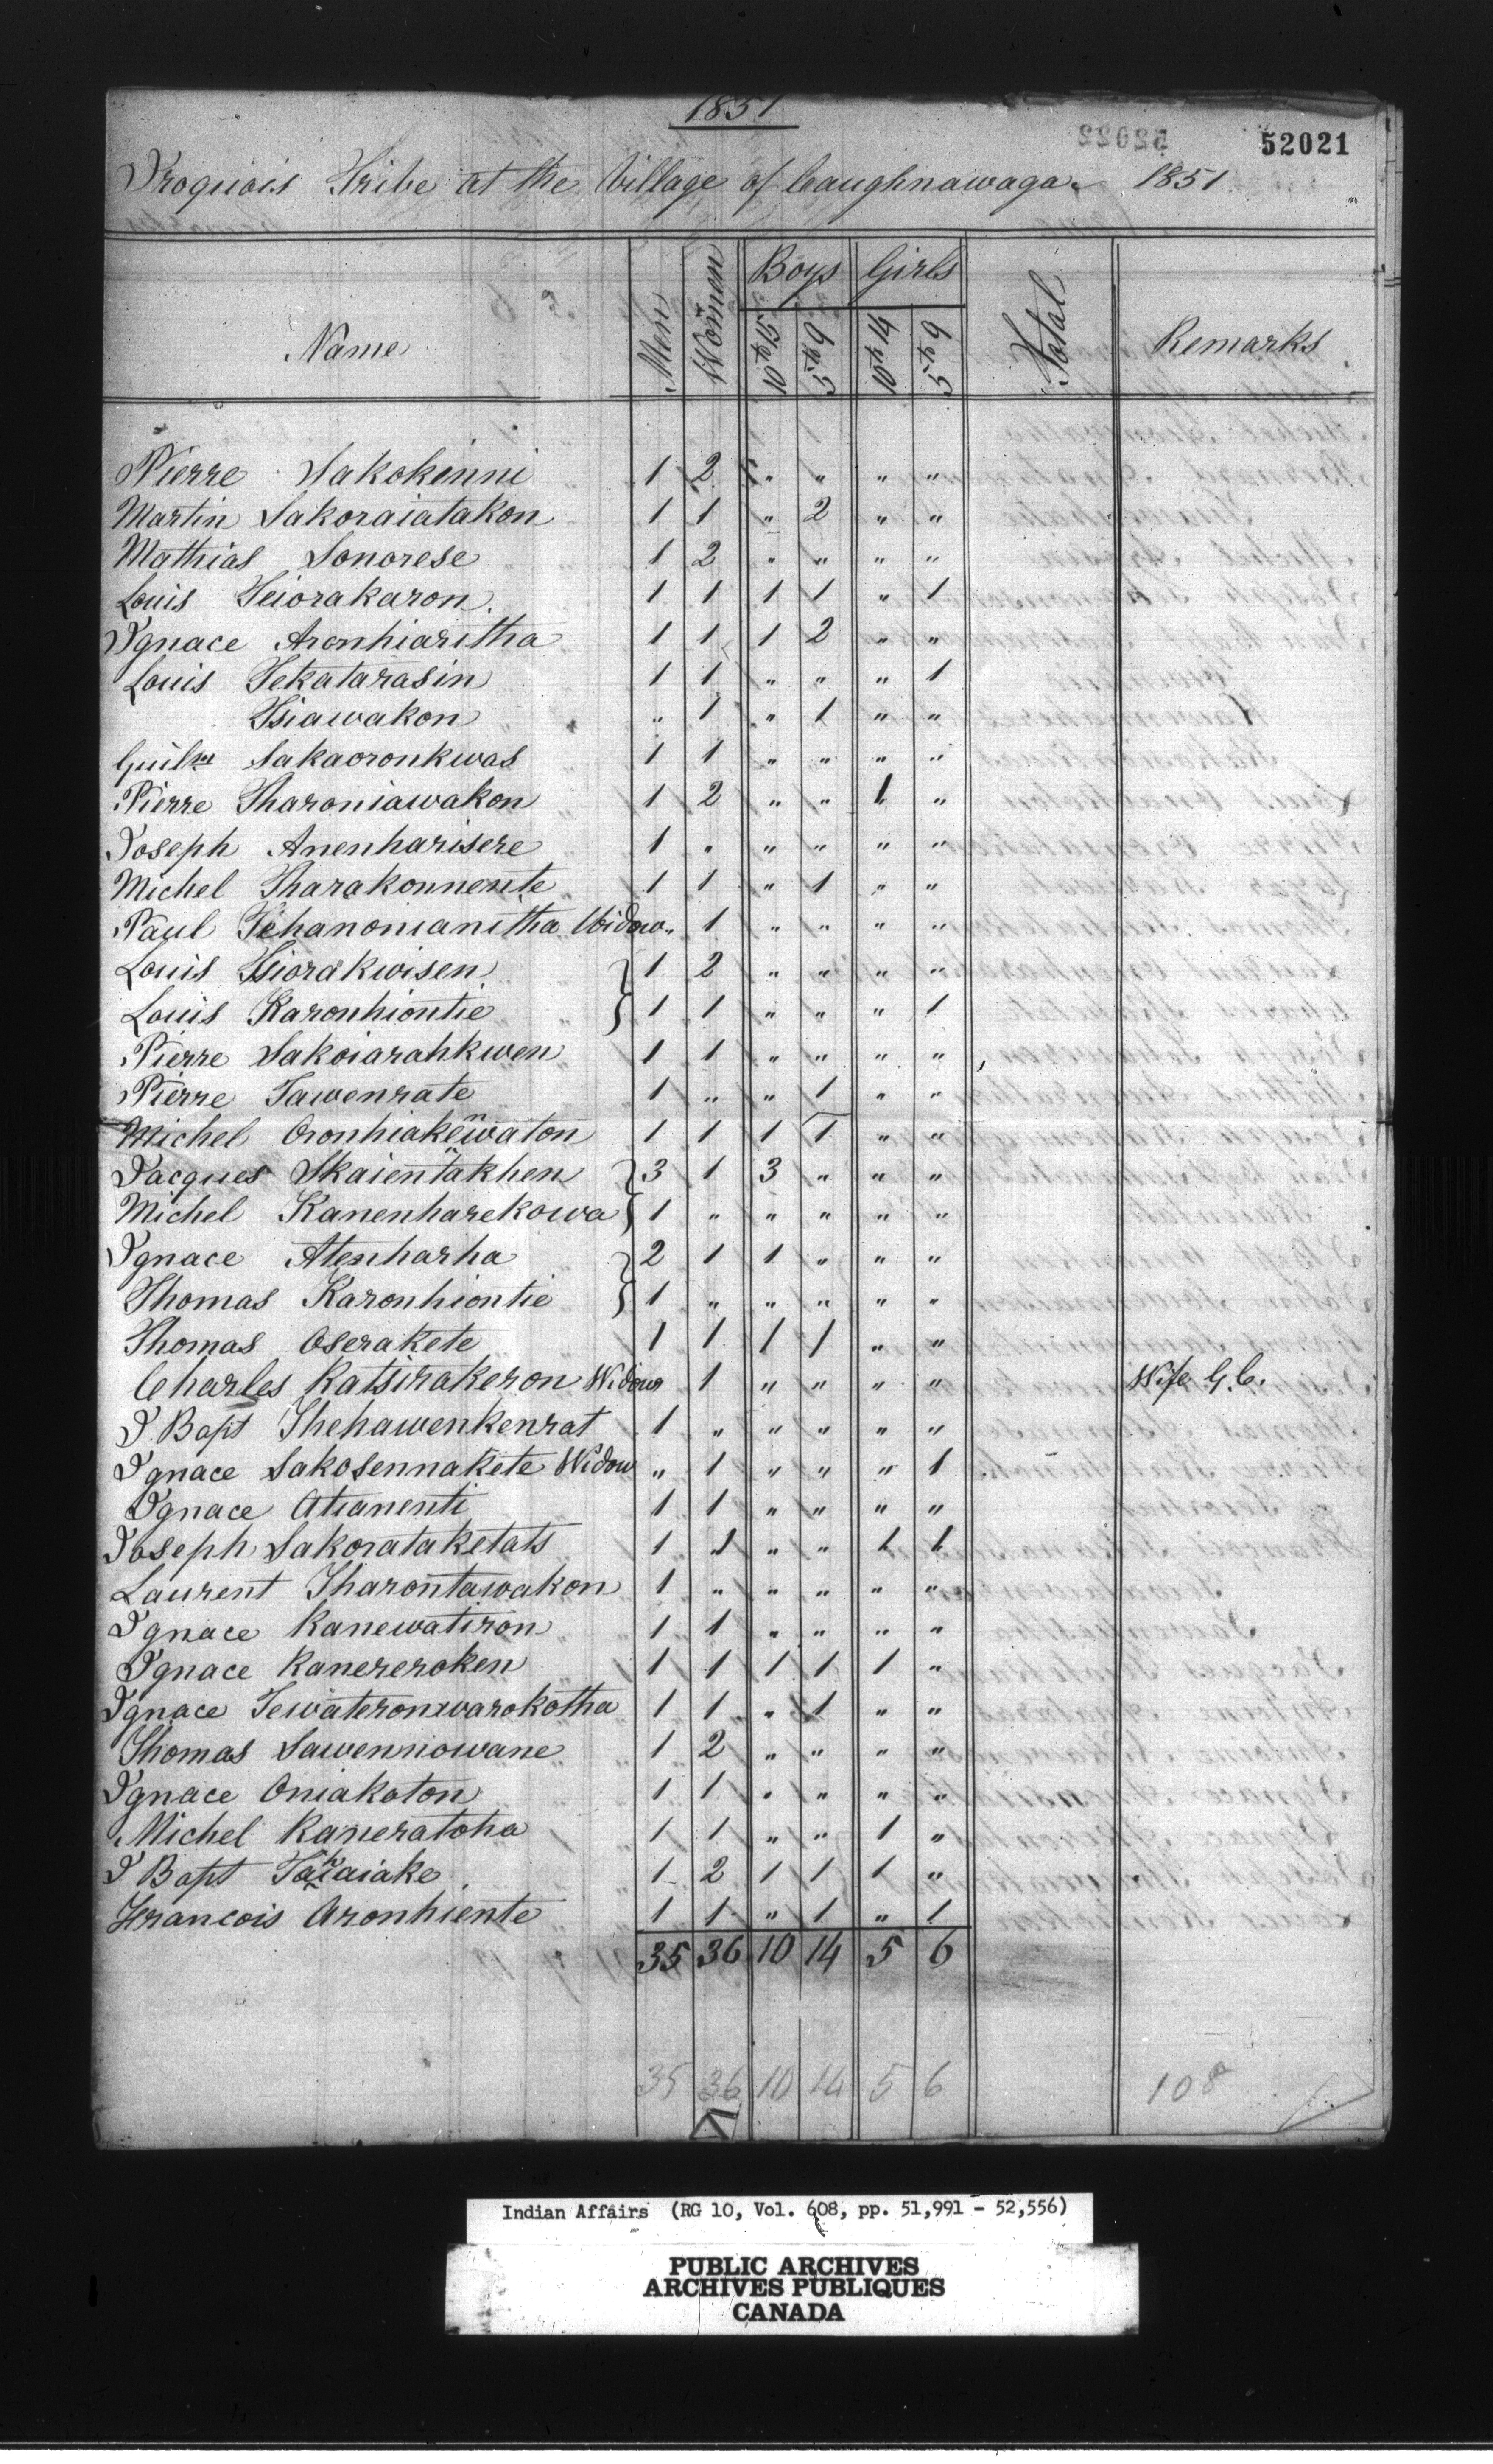 1851
52021
Iroquois Tribe at the Village of Caughnawaga 1851
Name Men Women Boys Girls Total Remarks
10 to 15 5 to 9 10 to 14 5 to 9
Pierre Sakokenni 1 2 " " " "
Martin Sakoraiatakon 1 1 " 2 " "
Mathias Sonorese 1 2 " " " "
Louis Teiorakaron 1 1 1 1 " 1
Ignace Aronhiaritha 1 1 1 2 " "
Louis Tekatarasin 1 1 " " " 1
Tsiawakon " 1 " 1 " "
Guilme Sakaoronkwas 1 1 " " " "
Pierre Tharoniawakon 1 2 " " 1 "
Joseph Anenharisere 1 " " " " "
Michel Tharakonnente 1 1 " 1 " "
Paul Tehanonianitha Widow " 1 " " " "
Louis Tsiorakwisen 1 2 " " " "
Louis Karonhiontie 1 1 " " " 1
Pierre Sakoiarahkwen 1 1 " " " "
Pierre Tawenrate 1 " " 1 " "
Michel Oronhiakenwaton 1 1 1 1 " "
Jacques Skaientakhen 3 1 3 " " "
Michel Kanenharekowa 1 " " " " "
Ignace Atenharha 2 1 1 " " "
Thomas Karonhiontie 1 " " " " "
Thomas Oserakete 1 1 1 1 " "
Charles Katsirakeron Widow 1 " " " " Wife G.C.
J. Bapt Thehawenkenrat 1 " " " " "
Ignace Sakosennakete Widow " 1 " " " 1
Ignace Atianenti 1 1 " " " "
Joseph Sakorataketats 1 1 " " 1 1
Laurent Tharontawakon 1 " " " " "
Ignace Kanewatiron 1 1 " " " "
Ignace Kanereroken 1 1 1 1 1 "
Ignace Tewateronwarokotha 1 1 " 1 " "
Thomas Sawenniowane 1 2 " " " "
Ignace Oniakoton 1 1 " " " "
Michel Kaneratoha 1 1 " " 1 "
J Bapt Takaiake 1 2 1 1 1 "
Francois Aronhiente 1 1 " 1 " 1
35 36 10 14 5 6
35 36 10 14 5 6 108
Indian Affairs (RG 10, Vol. 608, pp. 51,991 - 52,556)
PUBLIC ARCHIVES
ARCHIVES PUBLIQUES
CANADA